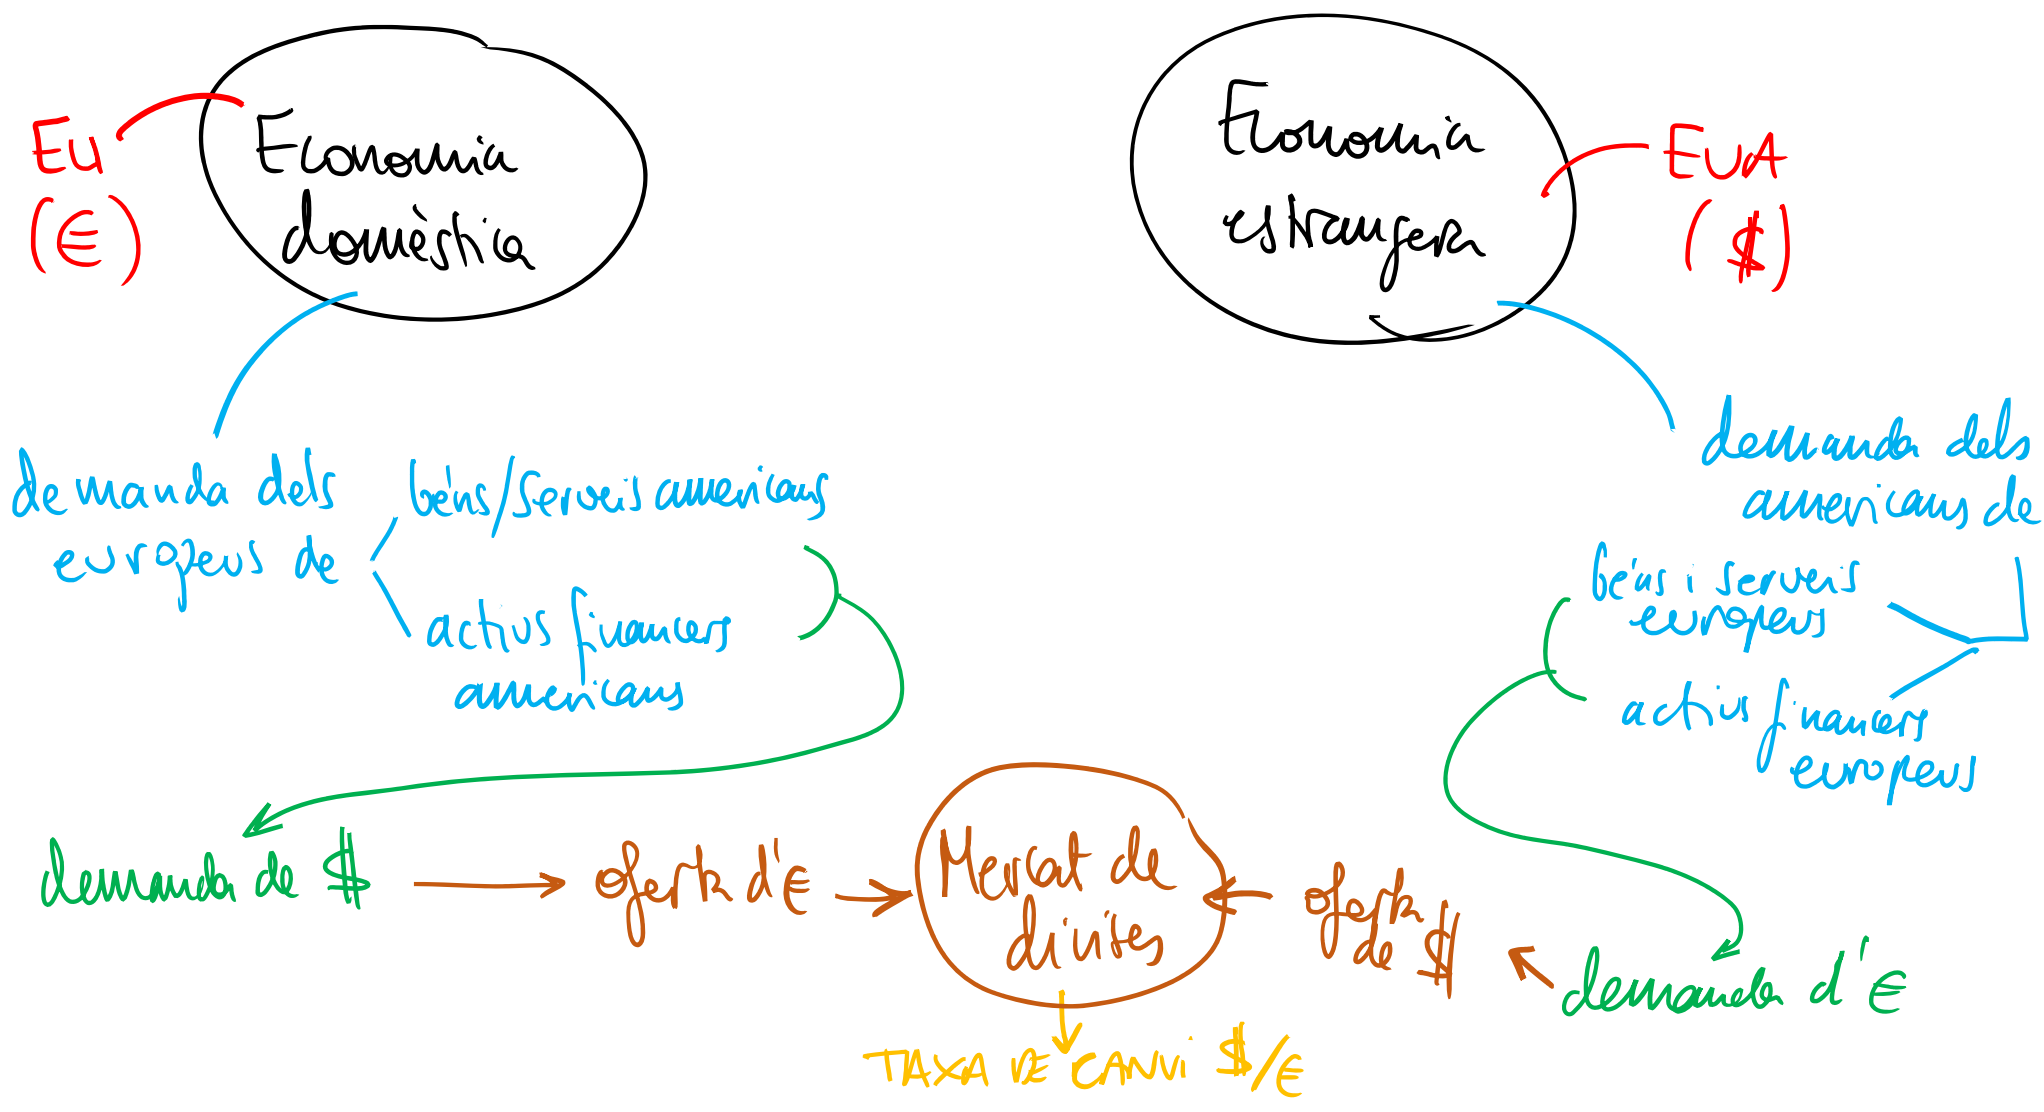 Eu
(€)
Economia
domèstica
Economia
estrangera
EUA
($)
demanda dels
europeus de
béns/serveis americans
actius financers
americans
demanda dels
americans de
béns i serveis
europeus
actius financers
europeus
demanda de $
oferta d'€
Mercat de
divises
oferta
de $
demanda d'€
TAXA DE CANVI $/€